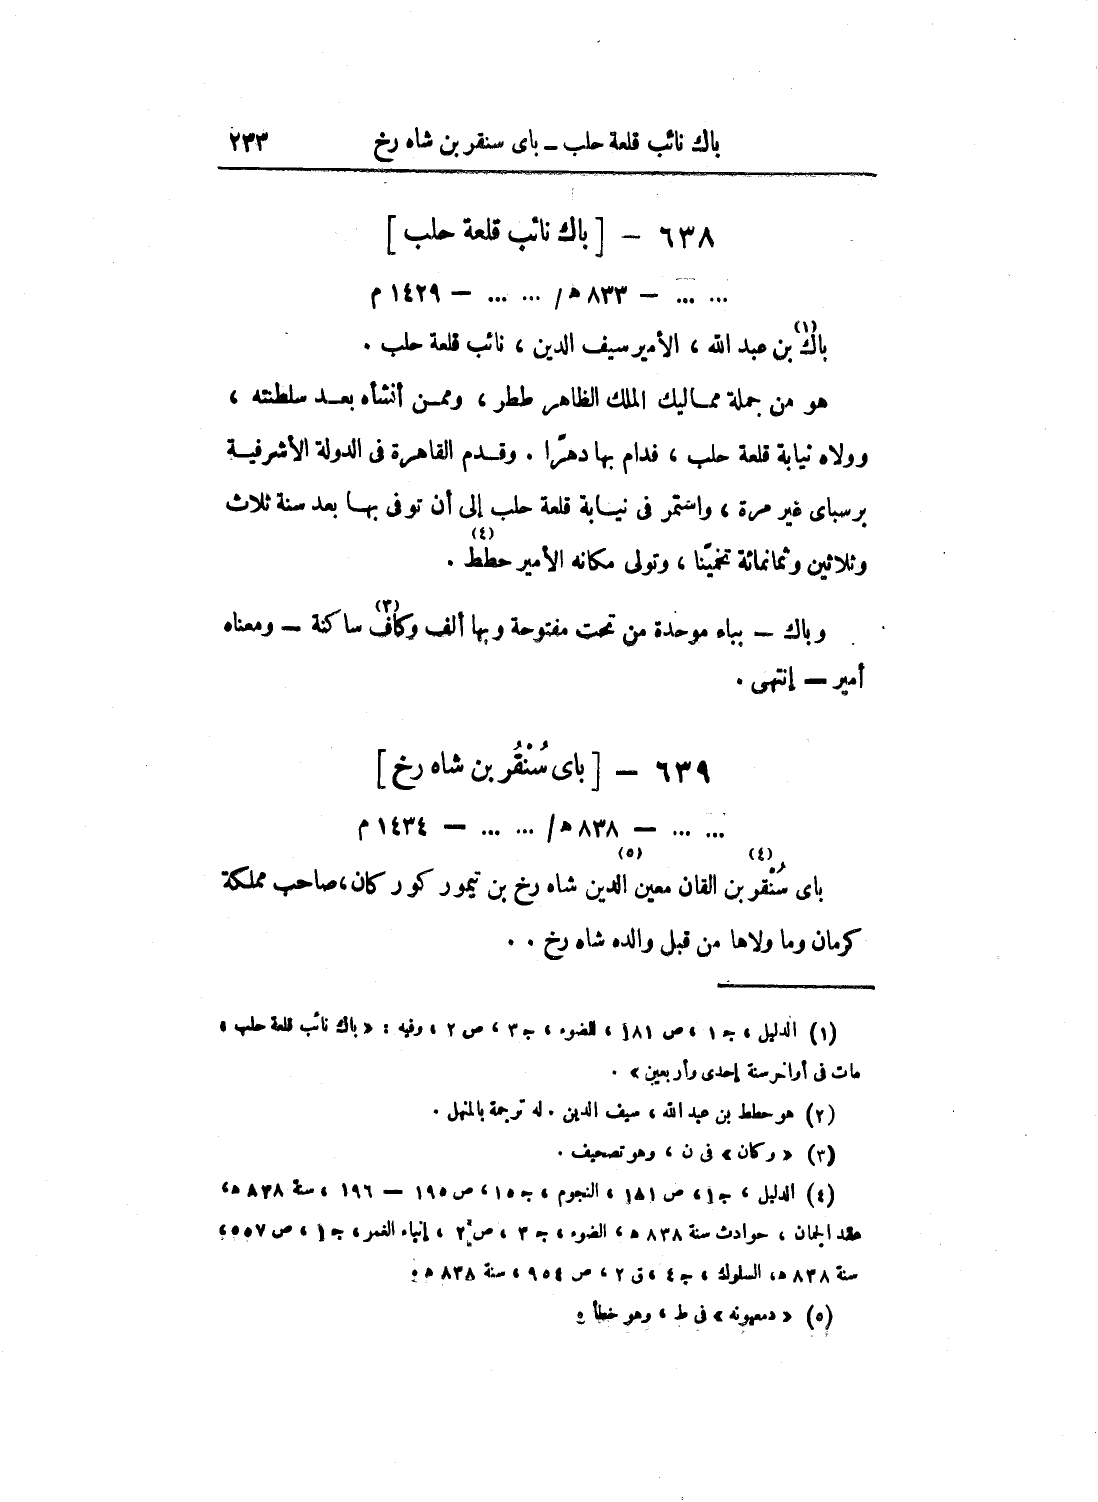 باك نائب قلعة حلب ــ باى سنقر بن شاه رخ ٢٣٣
٦٣٨ – [ باك نائب قلعة حلب ]
... ... – ٨٣٣ ه / ... ... – ١٤٢٩ م
باك(١) بن عبد الله ، الأمير سيف الدين ، نائب قلعة حلب .
هو من جملة مماليك الملك الظاهر ططر ، وممن أنشأه بعد سلطنته ،
وولاه نيابة قلعة حلب ، فدام بها دهرًا . وقدم القاهرة فى الدولة الأشرفية
برسباى غير مرة ، واستمر فى نيابة قلعة حلب إلى أن توفى بها بعد سنة ثلاث
وثلاثين وثمانمائة تخمينًا ، وتولى مكانه الأمير حطط(٤) .
وباك – بباء موحدة من تحت مفتوحة وبها ألف وكاف(٣) ساكنة – ومعناه
أمير – إنتهى .
٦٣٩ – [ باى سُنْقُر بن شاه رخ ]
... ... – ٨٣٨ ه / ... ... – ١٤٣٤ م
باى سُنْقُر(٤) بن القان معين الدين(٥) شاه رخ بن تيمور كوركان ، صاحب مملكة
كرمان وما ولاها من قبل والده شاه رخ . .
(١) الدليل ، ج ١ ، ص ١٨١ ، الضوء ، ج ٣ ، ص ٢ ، وفيه : « باك نائب قلعة حلب ،
مات فى أواخر سنة إحدى وأربعين » .
(٢) هو حطط بن عبد الله ، سيف الدين . له ترجمة بالمنهل .
(٣) « وكان » فى ن ، وهو تصحيف .
(٤) الدليل ، ج ١ ، ص ١٨١ ، النجوم ، ج ١٥ ، ص ١٩٥ – ١٩٦ ، سنة ٨٣٨ ه ،
عقد الجمان ، حوادث سنة ٨٣٨ ه ، الضوء ، ج ٣ ، ص ٢ ، إنباء الغمر ، ج ١ ، ص ٥٥٧ ،
سنة ٨٣٨ ه ، السلوك ، ج ٤ ، ق ٢ ، ص ٩٥٤ ، سنة ٨٣٨ ه .
(٥) « دمعهونه » فى ط ، وهو خطأ .